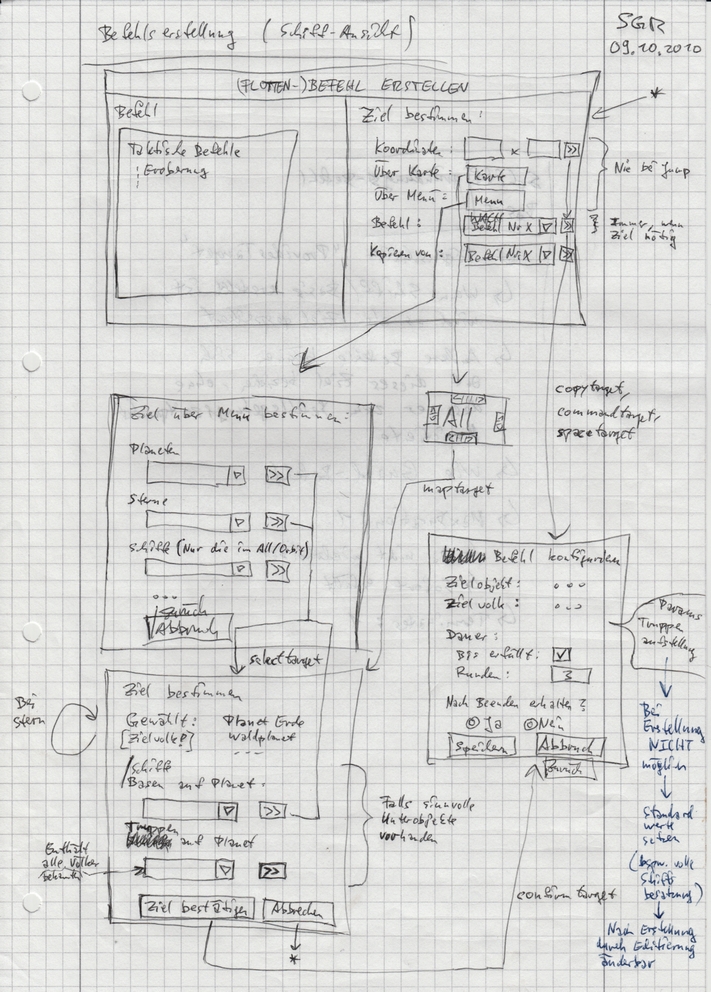 Befehlserstellung (Schiff-Ansicht)
SGR
09.10.2010
(FLOTTEN-)BEFEHL ERSTELLEN
*
Befehl
Taktische Befehle
Eroberung
Ziel bestimmen:
Koordinaten: x >>
Über Karte: Karte
Über Menü: Menü
Befehl: Befehl Nr X >>
Kopieren von: Befehl Nr X >>
Nie bei Jump
Immer, wenn
Ziel nötig
Ziel über Menü bestimmen:
Planeten
>>
Sterne
>>
Schiffe (Nur die im All/Orbit)
>>
...
Zurück
Abbruch
All
maptarget
copytarget,
commandtarget,
spacetarget
selecttarget
Befehl konfigurieren
Zielobjekt: ...
Zielvolk: ...
Dauer:
Bis erfüllt:
Runden: 3
Nach Beenden erhalten?
Ja Nein
Speichern Abbruch
Zurück
Params
Truppen
aufstellung
Bei
Erstellung
NICHT
möglich
Standard
werte
setzen
(bspw. volle
Schiff
besatzung)
Nach Erstellung
durch Editierung
änderbar
Bei
Stern
Ziel bestimmen
Gewählt: Planet Erde
[Zielvolk?] Waldplanet
/Schiff
Basen auf Planet:
>>
Truppen
auf Planet
>>
Enthält
alle Völker
Falls sinnvolle
Unterobjekte
vorhanden
Ziel bestätigen Abbrechen
*
confirm target